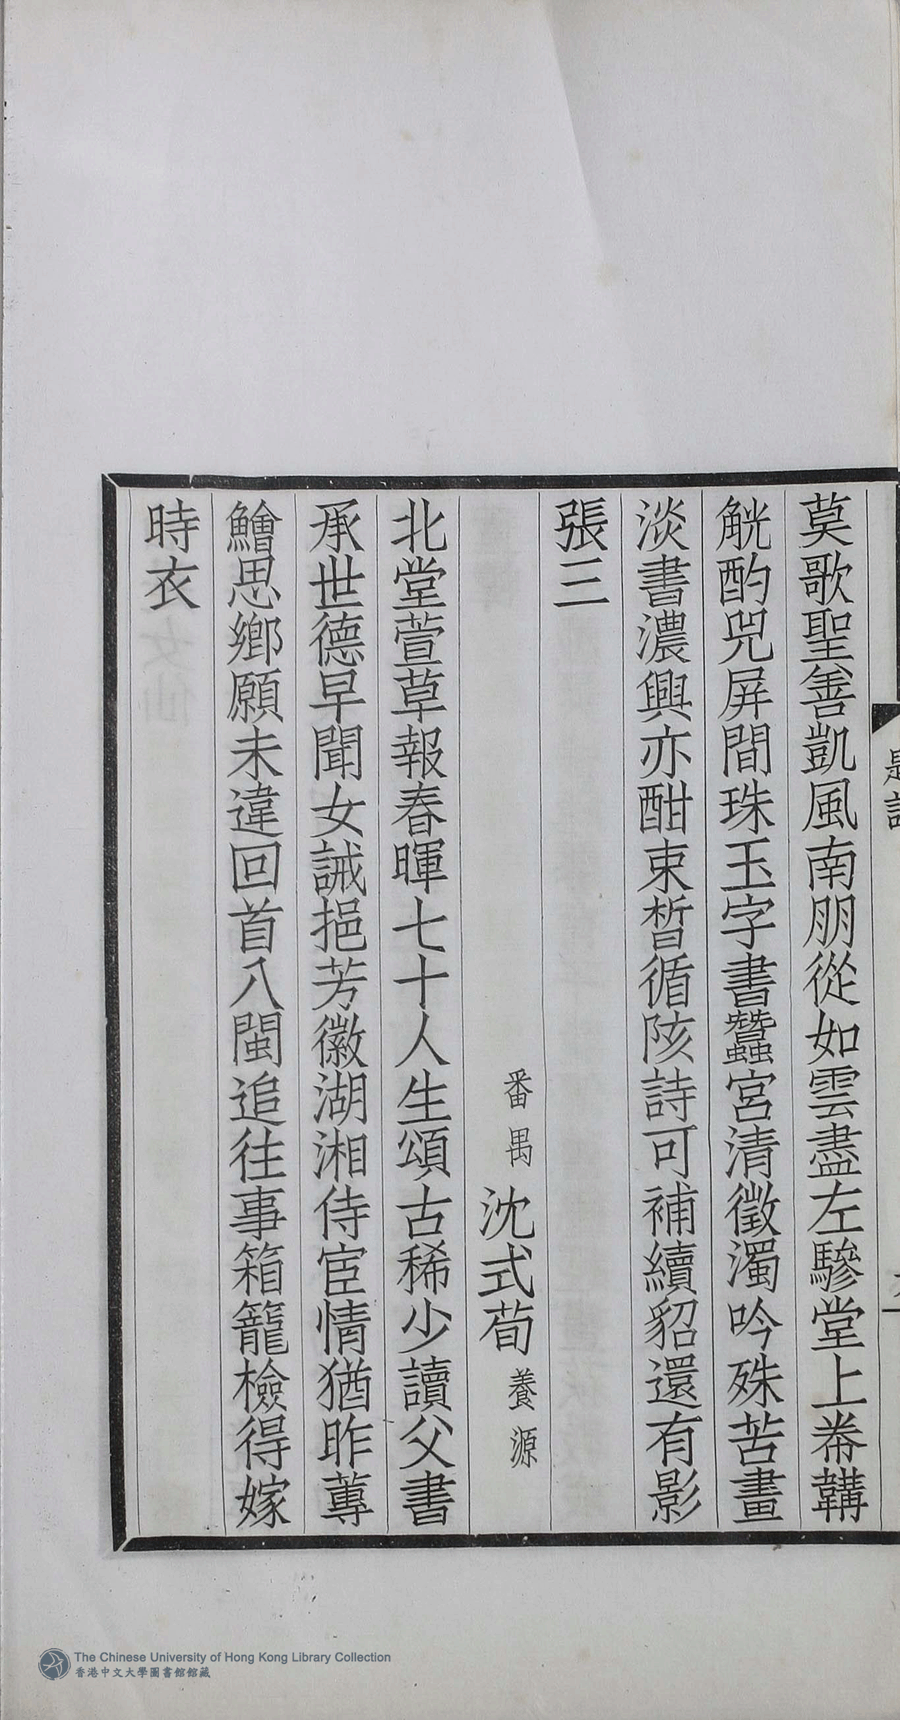 莫歌聖善凱風南朋從如雲盡左驂堂上帣韝
觥酌兕屏間珠玉字書蠶宮清徵濁吟殊苦畫
淡書濃興亦酣束皙循陔詩可補續貂還有影
張三
番禺 沈式荀 養源
北堂萱草報春暉七十人生頌古稀少讀父書
承世德早聞女誡挹芳徽湖湘侍宦情猶昨蓴
鱠思鄉願未違回首八閩追往事箱籠檢得嫁
時衣
The Chinese University of Hong Kong Library Collection
香港中文大學圖書館館藏